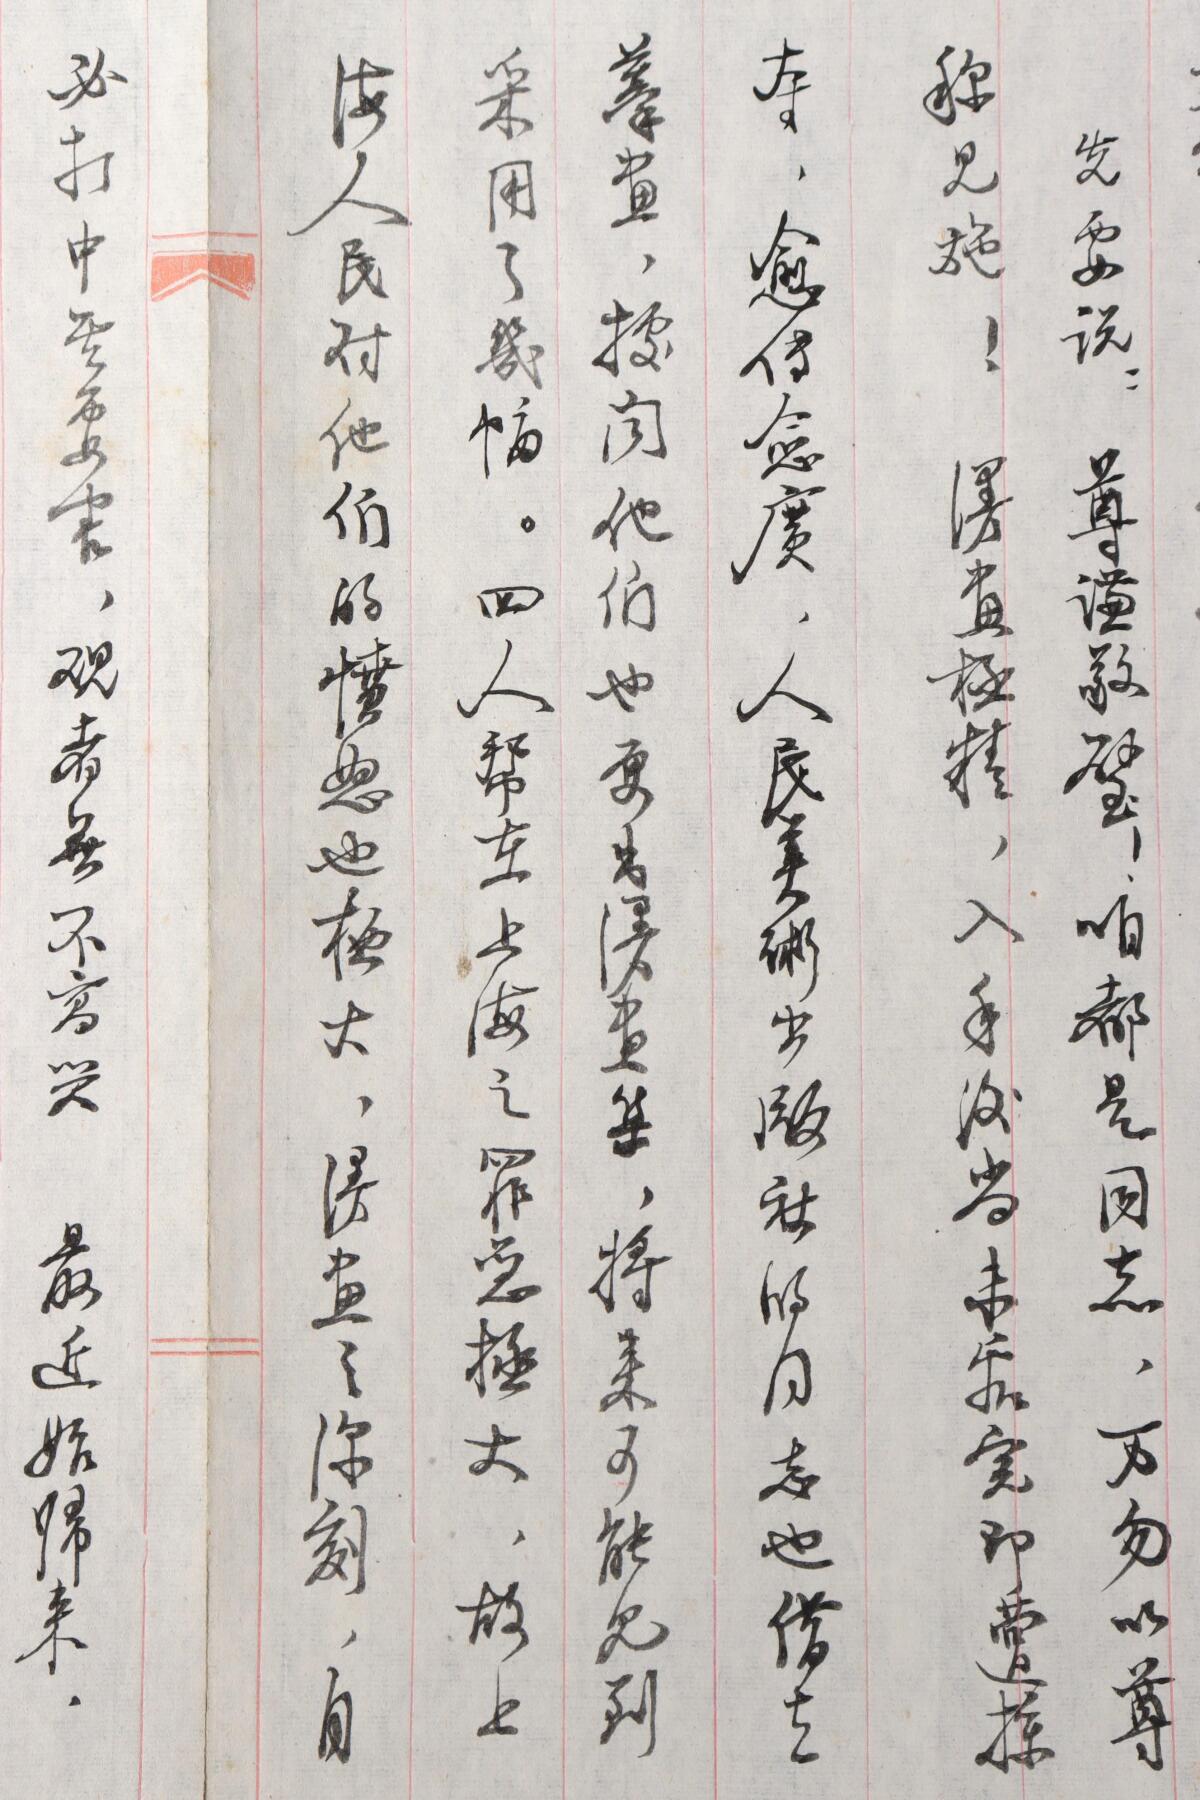 先要说：尊谦敬璧，咱都是同志，万勿以尊
称见施！漫画极精，入手后尚未看完即遭掠
夺，愈传愈广，人民美术出版社的同志也借去
摹画，据闻他们也要出漫画集，将来可能见到
采用了几幅。四人帮在上海之罪恶极大，故上
海人民对他们的愤怒也极大，漫画之深刻，自
必打中其要害，观者无不高兴 最近始归来，